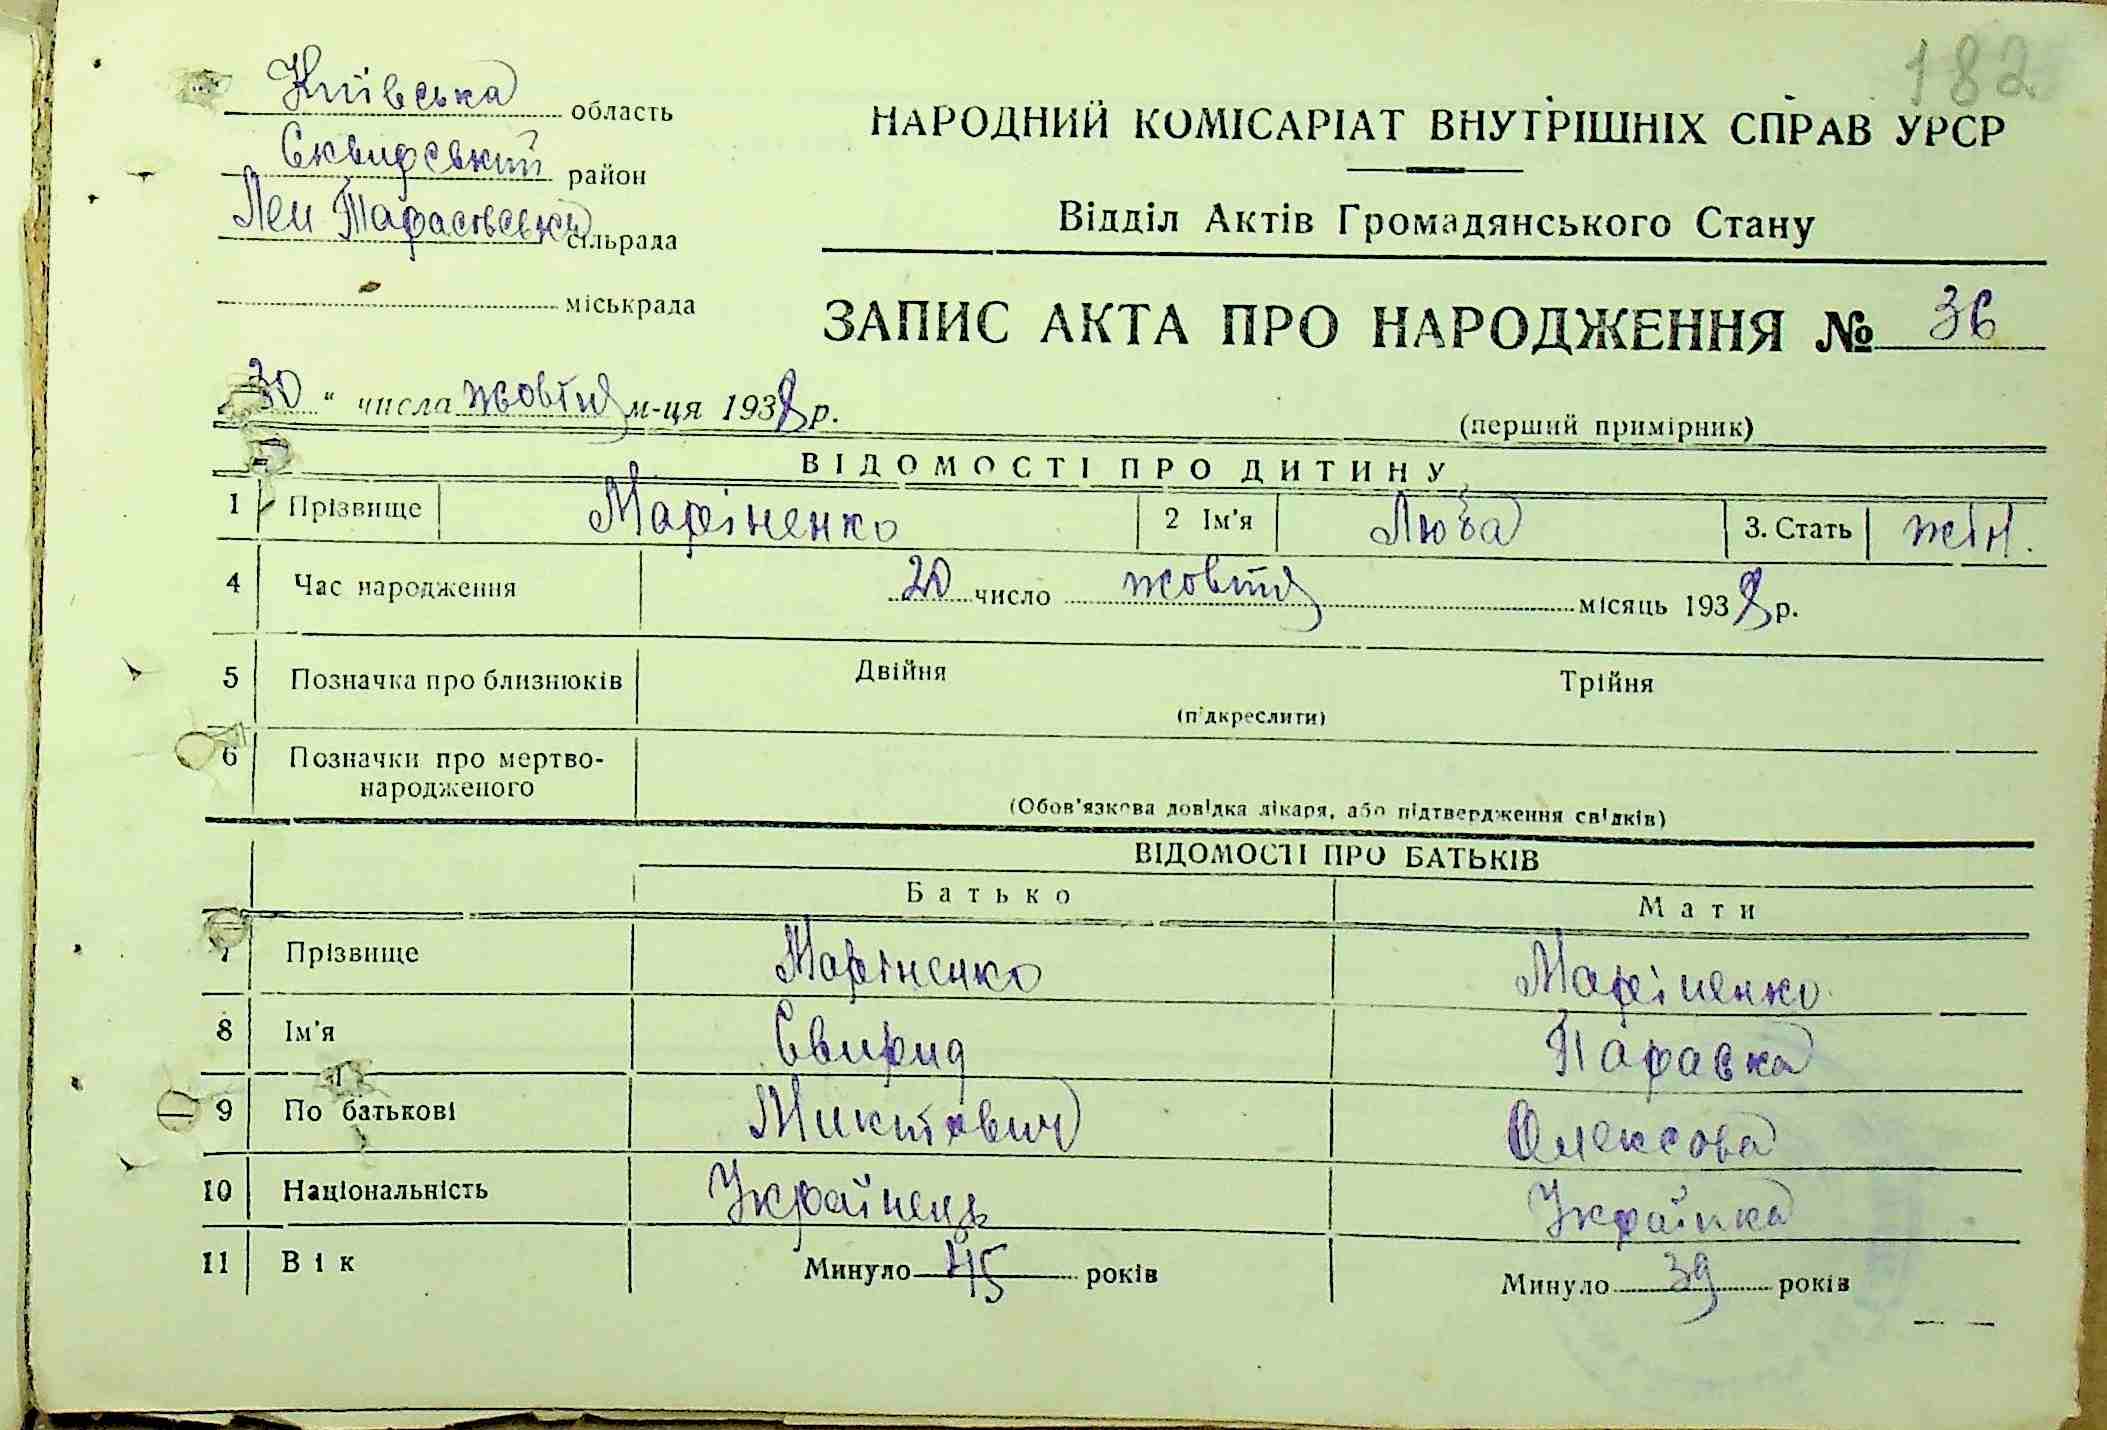 182
Київська область
НАРОДНИЙ КОМІСАРІАТ ВНУТРІШНІХ СПРАВ УРСР
Сквирський район
Відділ Актів Громадянського Стану
Лен Тарасівська сільрада
міськрада
ЗАПИС АКТА ПРО НАРОДЖЕННЯ № 36
30 " числа жовтня м-ця 1938 р.
(перший примірник)
ВІДОМОСТІ ПРО ДИТИНУ
1 Прізвище Маріненко 2 Ім'я Люба 3. Стать жін.
4 Час народження 20 число жовтня місяць 1938 р.
5 Позначка про близнюків Двійня Трійня
(підкреслити)
6 Позначки про мертво-
народженого
(Обов'язкова довідка лікаря, або підтвердження свідків)
ВІДОМОСТІ ПРО БАТЬКІВ
Батько Мати
7 Прізвище Маріненко Маріненко
8 Ім'я Свирид Параска
9 По батькові Микитович Олексова
10 Національність Українець Українка
11 Вік Минуло 45 років Минуло 39 років